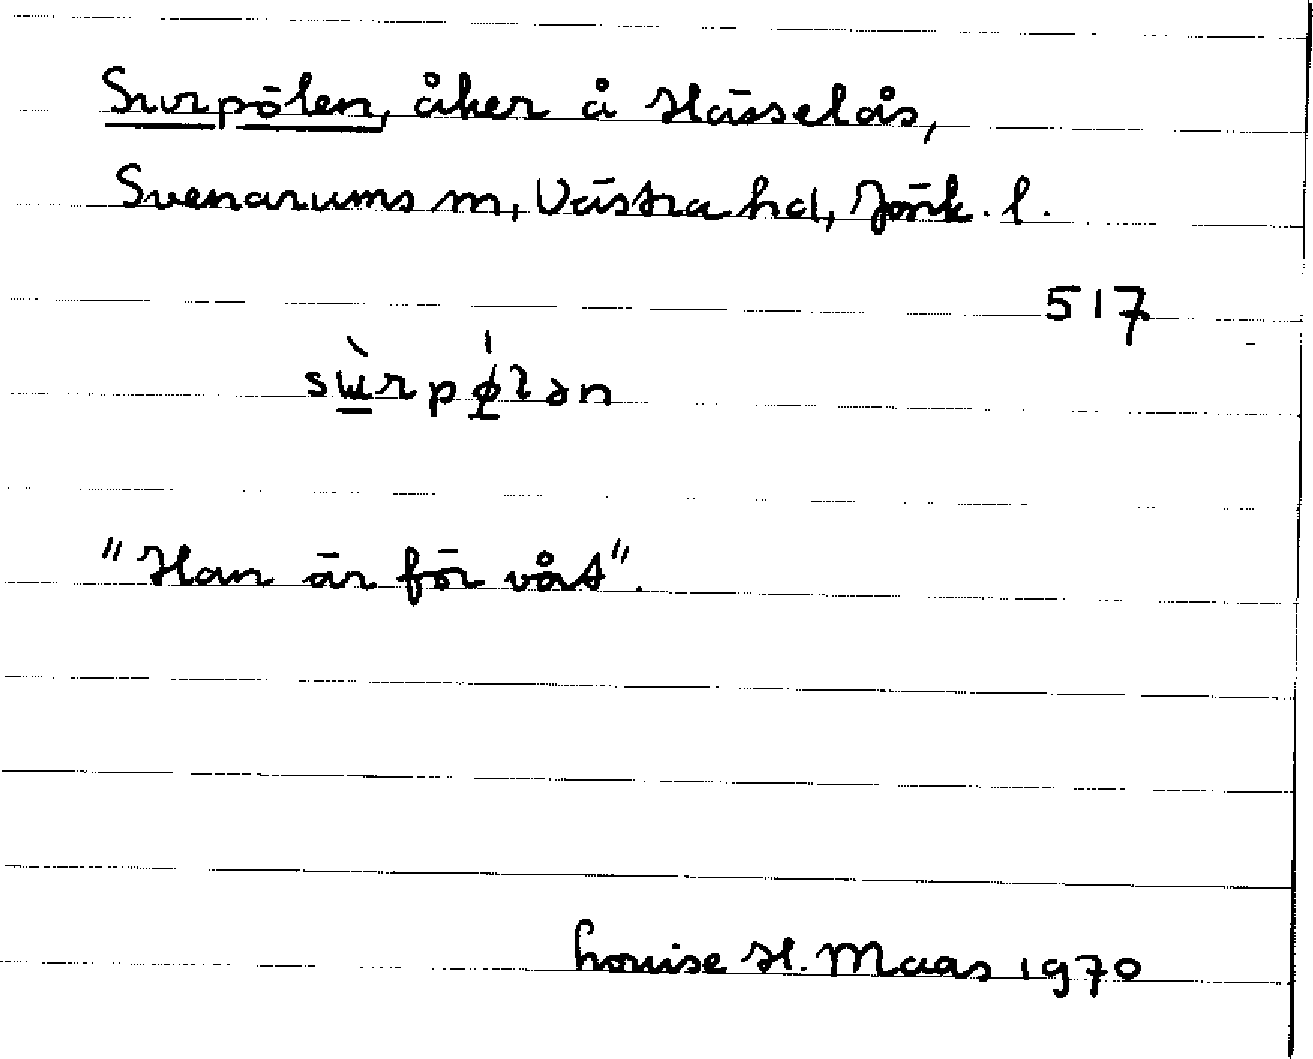 Surpölen, åker å Hässelås,
Svenarums sn, Västra hd, Jönk. l.
517
sɯ̀rpǿlən
"Han är för våt".
Louise H. Maas 1970